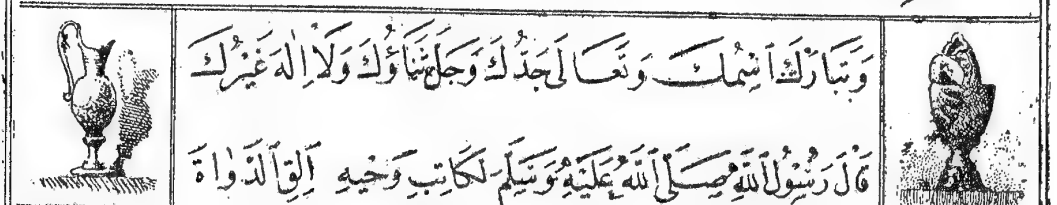 وَتَبَارَكَ ٱسْمُكَ وَتَعَالَى جَدُّكَ وَجَلَّ ثَنَاؤُكَ وَلَا إِلٰهَ غَيْرُكَ
قَالَ رَسُولُ ٱللّٰهِ صَلَّى ٱللّٰهُ عَلَيْهِ وَسَلَّمَ لِكَاتِبِ وَحْيِهِ اَلِقِ ٱلدَّوَاةَ